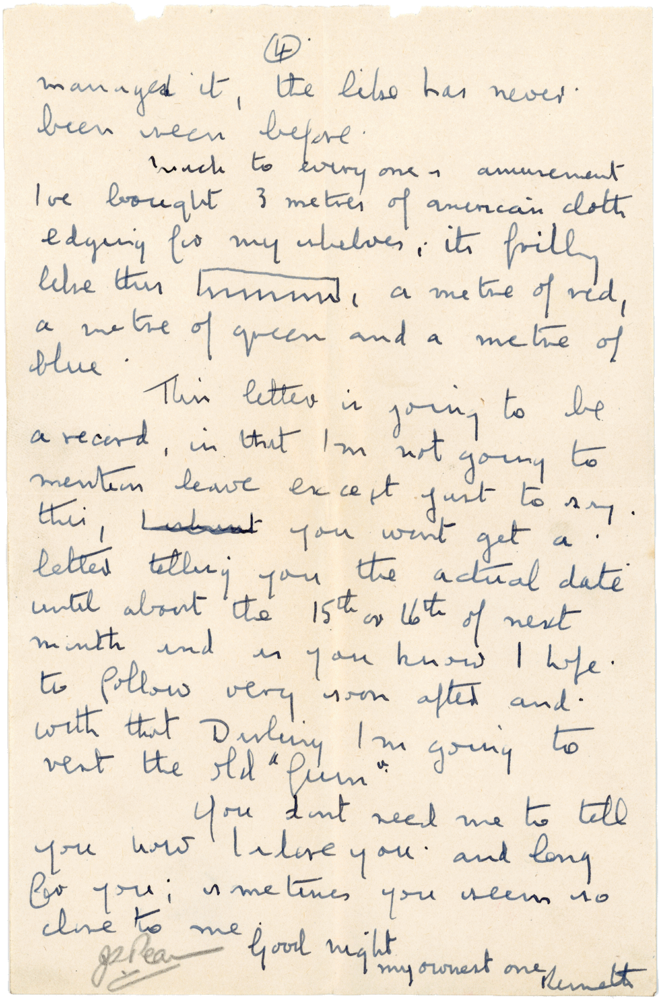 ④
managed it, the like has never
been seen before.
Much to everyone's amusement
I've bought 3 metres of american cloth
edging for my shelves; its frilly
like this , a metre of red,
a metre of green and a metre of
blue.
This letter is going to be
a record, in that I'm not going to
mention leave except just to say
this, you wont get a
letter telling you the actual date
until about the 15th or 16th of next
month and as you know I hope
to follow very soon after and
with that Darling I'm going to
rest the old "Gum".
You dont need me to tell
you how I love you and long
for you; sometimes you seem so
close to me.
Good night
my ownest one,
Kenneth